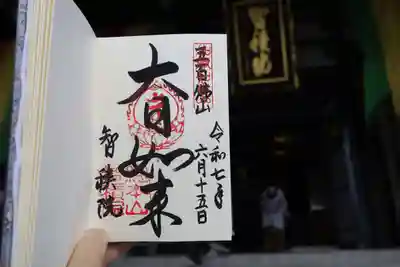 五百佛山
令和七年
六月十五日
大日如来
智積院